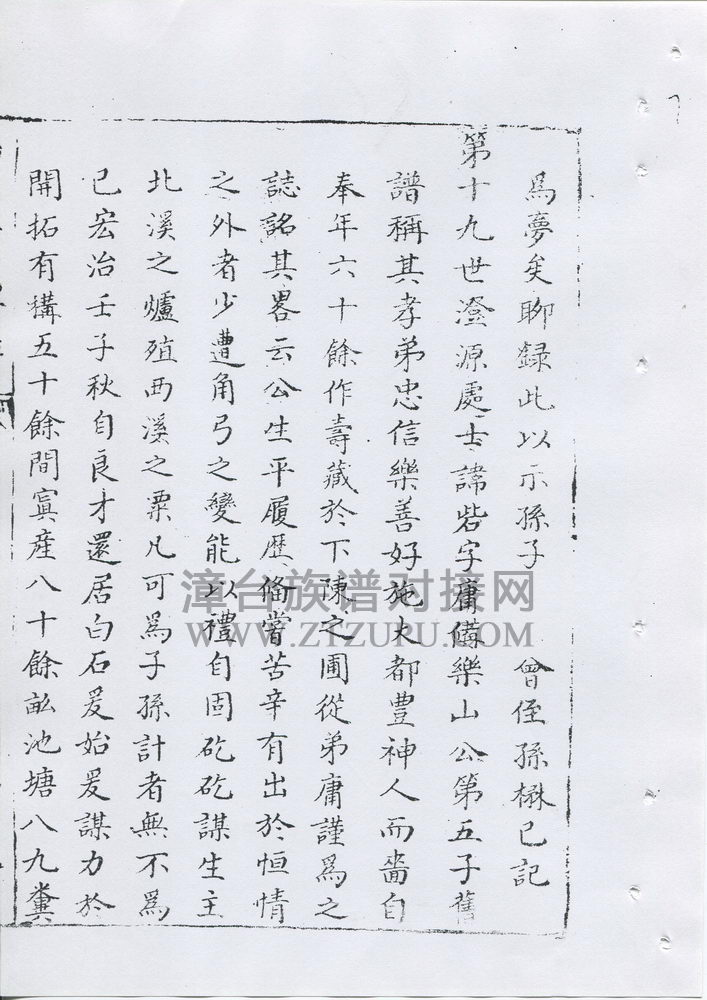 為夢矣聊録此以示孫子 曾侄孫楸已記
第十九世澄源處士諱砦字庸備樂山公第五子舊
譜稱其孝弟忠信樂善好施大都豊神人而嗇自
奉年六十餘作壽藏於下陳之圃從弟庸謹為之
誌銘其畧云公生平履歷俻嘗苦辛有出於恒情
之外者少遭角弓之變能以禮自固矻矻謀生主
北溪之爐殖西溪之粟凡可為子孫計者無不為
已宏治壬子秋自良才還居白石爰始爰謀力於
開拓有構五十餘間寘産八十餘畝池塘八九糞
漳台族谱对接网
WWW.ZTZUPU.COM